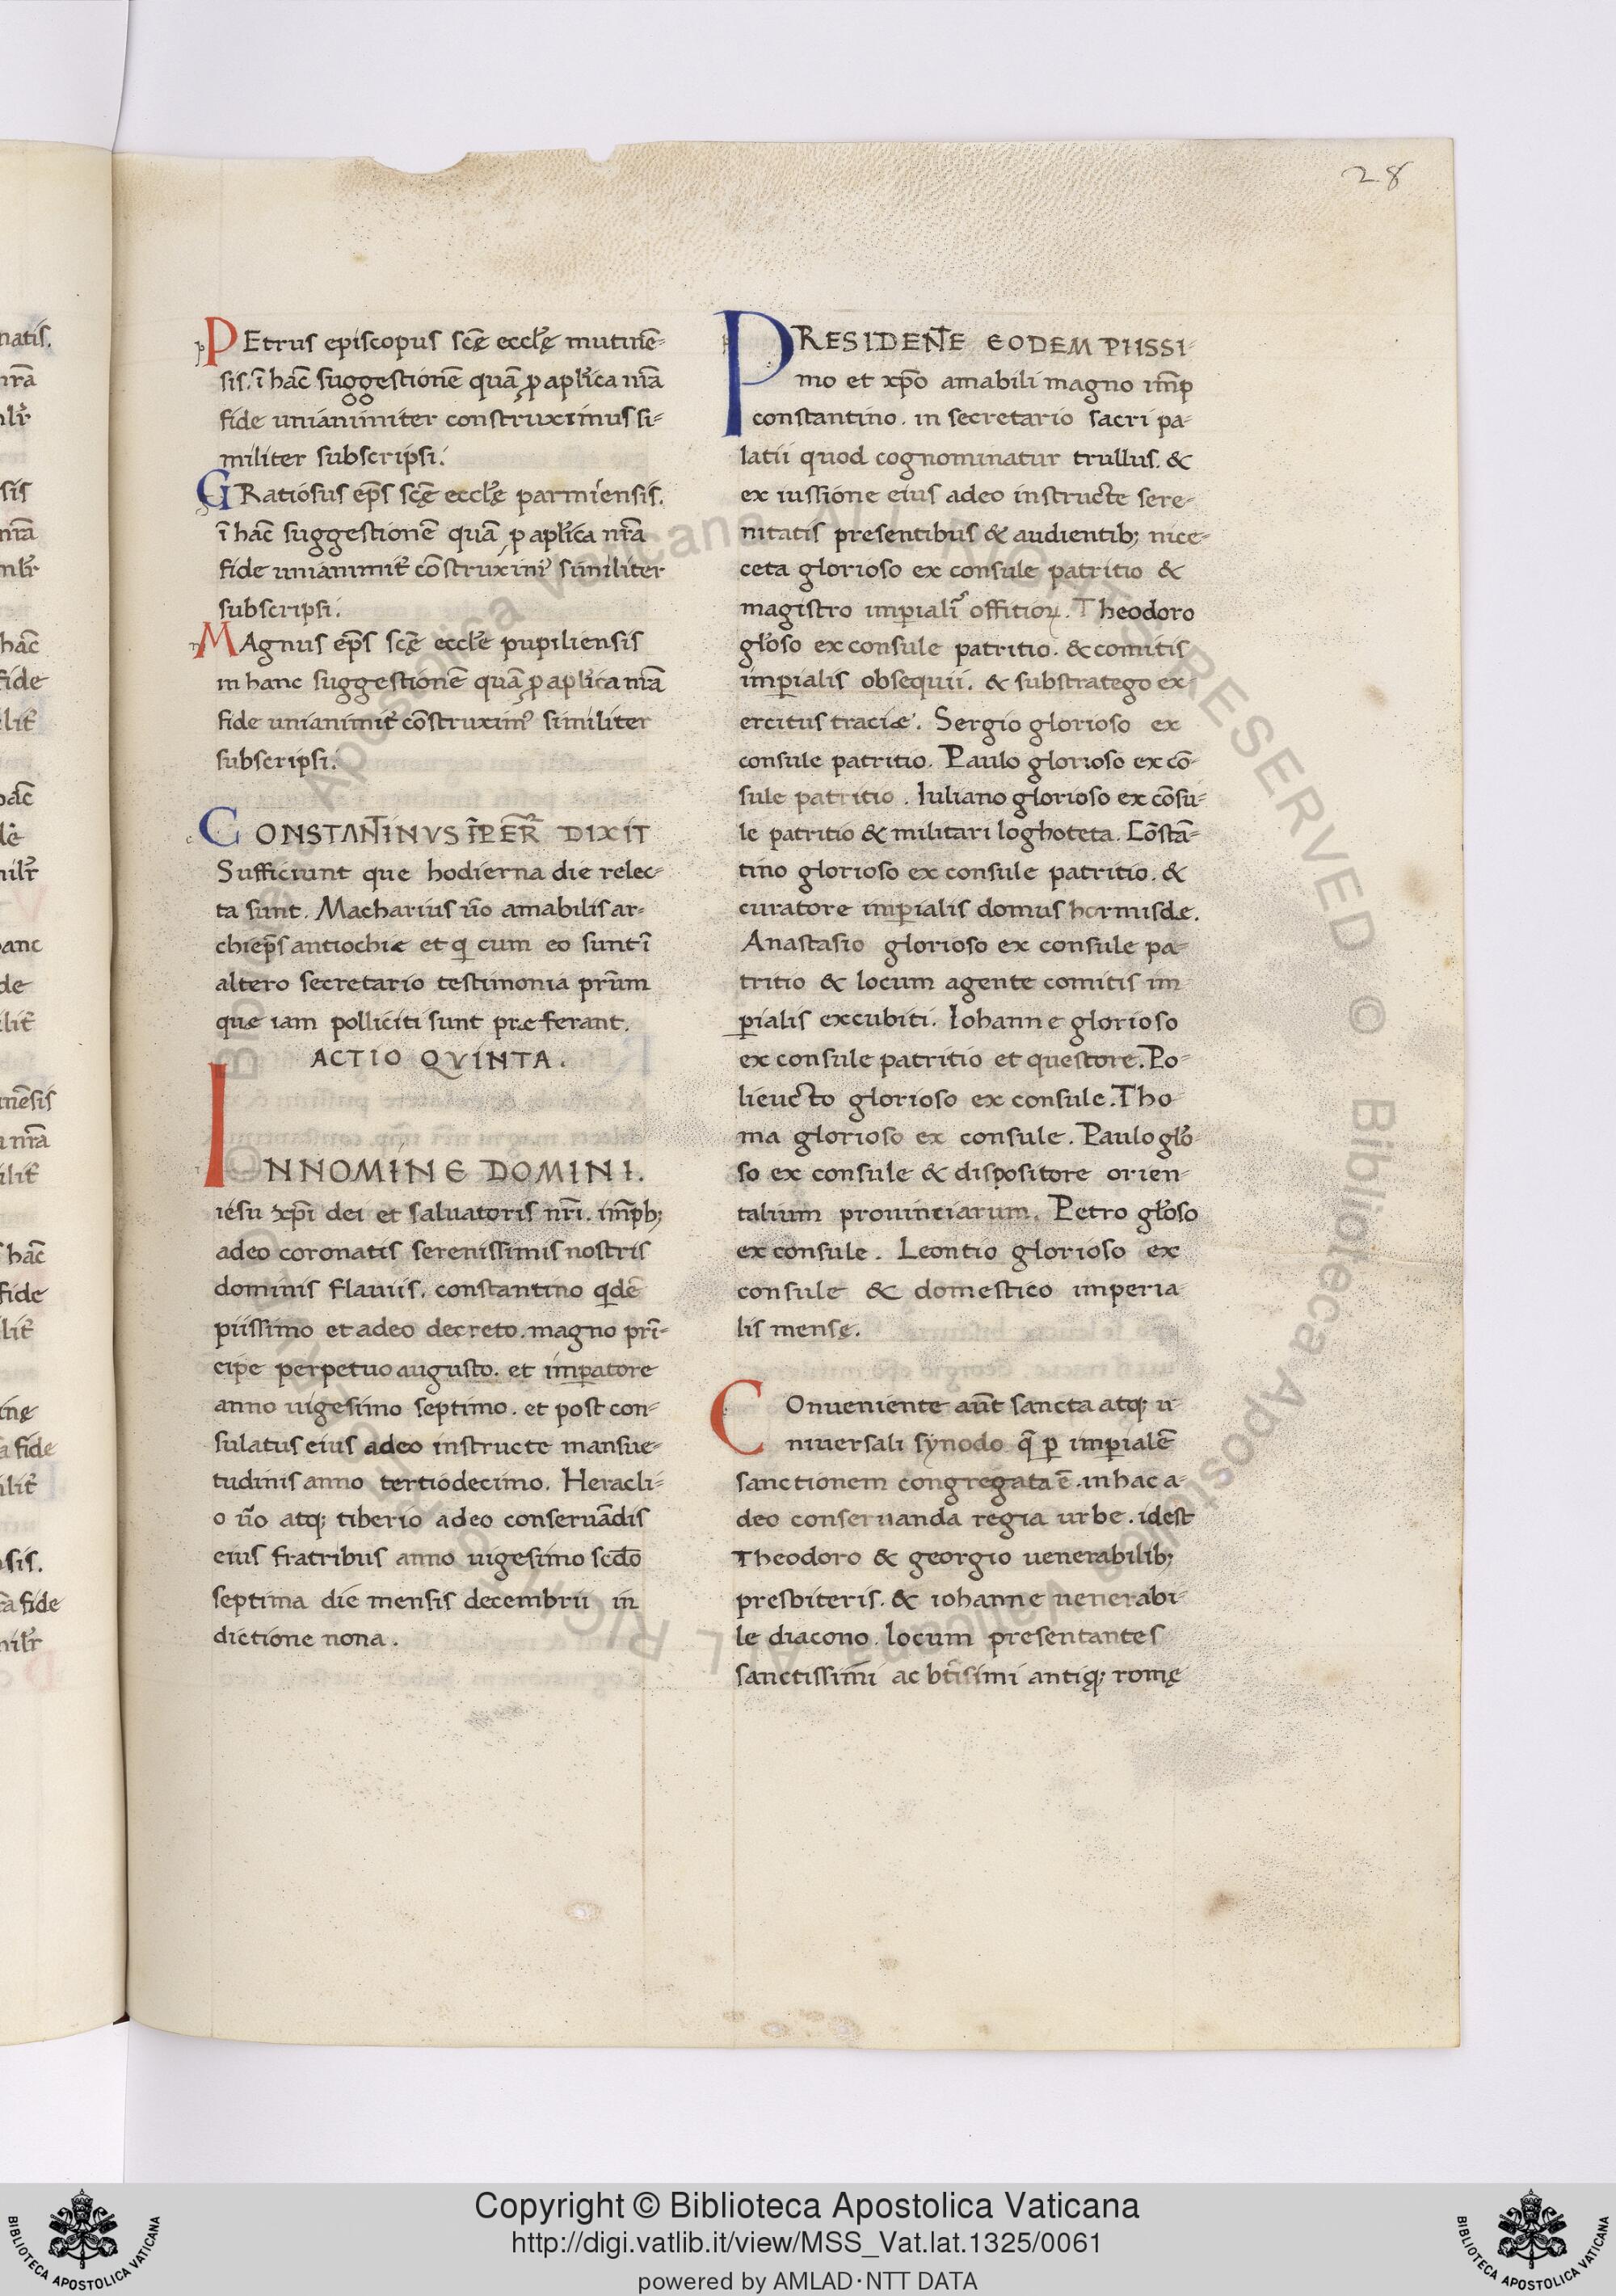 28
PEtrus episcopus scę̄ eccl̓ę mutinē-
sis. ī hāc suggestionē quā ꝓ apl̓ica nr̄a
fide unianimiter construximus si-
militer subscripsi.
GRatiosus ep̄s scę̄ eccl̓ę parmensis.
ī hāc suggestionē quā ꝓ apl̓ica nr̄a
fide unianimit̓ cōstruximꝰ similiter
subscripsi.
MAgnus ep̄s scę̄ eccl̓e pupiliensis
in hanc suggestionē quā ꝓ apl̓ica nr̄a
fide unianimit̓ cōstruximꝰ similiter
subscripsi.
CONSTANTINVS ĪPER̄ DIXIT
Sufficiunt que hodierna die relec-
ta sunt. Macharius ūo amabilis ar-
chiep̄s antiochiæ et q̣ cum eo sunt ī
altero secretario testimonia pr̄um
quæ iam polliciti sunt præferant.
ACTIO QVINTA.
INNOMINE DOMINI.
iesu xp̄i dei et saluatoris nr̄i. im̄pb;
adeo coronatis serenissimis nostris
dominis flauiis. constantino qꝺē
piissimo et adeo decreto. magno prī-
cipe perpetuo augusto. et imꝑatore
anno uigesimo septimo. et post con-
sulatus eius adeo instructe mansue-
tudinis anno tertiodecimo. Heracli-
o ūo atq; tiberio adeo conseruādis
eius fratribus anno uigesimo scd̄o
septima die mensis decembrii in
dictione nona.
PRESIDENTE EODEM PIISSI-
mo et xp̄o amabili magno im̄p
constantino. in secretario sacri pa-
latii quod cognominatur trullus. &
ex iussione eius adeo instructe sere-
nitatis presentibus & audientib; nice-
ceta glorioso ex consule patritio &
magistro imꝑialiꝰ offitioꝝ. Theodoro
gl̓oso ex consule patritio. & comitis
imꝑialis obsequii. & substratego ex-
ercitus traciæ. Sergio glorioso ex
consule patritio. Paulo glorioso ex cō-
sule patritio. Iuliano glorioso ex cōsu-
le patritio & militari loghoteta. Cōstā-
tino glorioso ex consule patritio. &
curatore imꝑialis domus hormisdæ.
Anastasio glorioso ex consule pa-
tritio & locum agente comitis im-
ꝑialis excubiti. Iohanne glorioso
ex consule patritio et questore. Po-
lieucto glorioso ex consule. Tho-
ma glorioso ex consule. Paulo gl̓o-
so ex consule & dispositore orien-
talium prouinciarum. Petro gl̓oso
ex consule. Leontio glorioso ex
consule & domestico imperia-
lis mensę.
COnueniente aūt sancta atq; u-
niuersali synodo q̄ ꝑ imꝑialē
sanctionem congregata ē. in hac a-
deo conseruanda regia urbe. idest
Theodoro & georgio uenerabilib;
presbiteris. & iohanne uenerabi-
le diacono. locum presentantes
sanctissimi ac bt̄isimi antiq; romę
Copyright © Biblioteca Apostolica Vaticana
http://digi.vatlib.it/view/MSS_Vat.lat.1325/0061
powered by AMLAD·NTT DATA